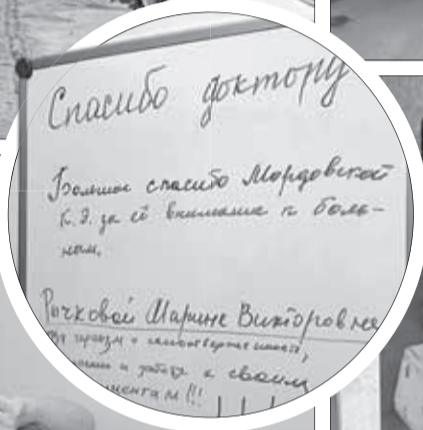 Спасибо доктору
Большое спасибо Мордовской
К.Э. за её внимание к боль-
ным.
Рычковой Марине Викторовне
За героизм и самоотверженность,
и заботу к своим